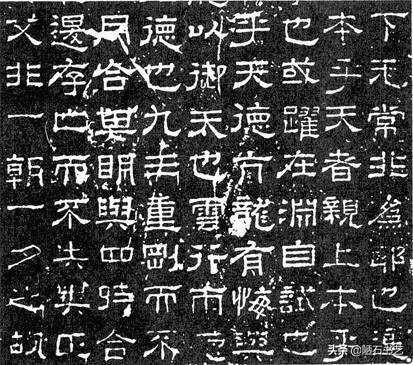 下无常非為邪也進
本乎天者親上本乎
也或躍在淵自試也
乎天德亢龍有悔與
以御天也雲行雨
德也九三重剛而不
月合其明與四時合
退存亡而不失其
父非一朝一夕之故
头条 @陋石书艺